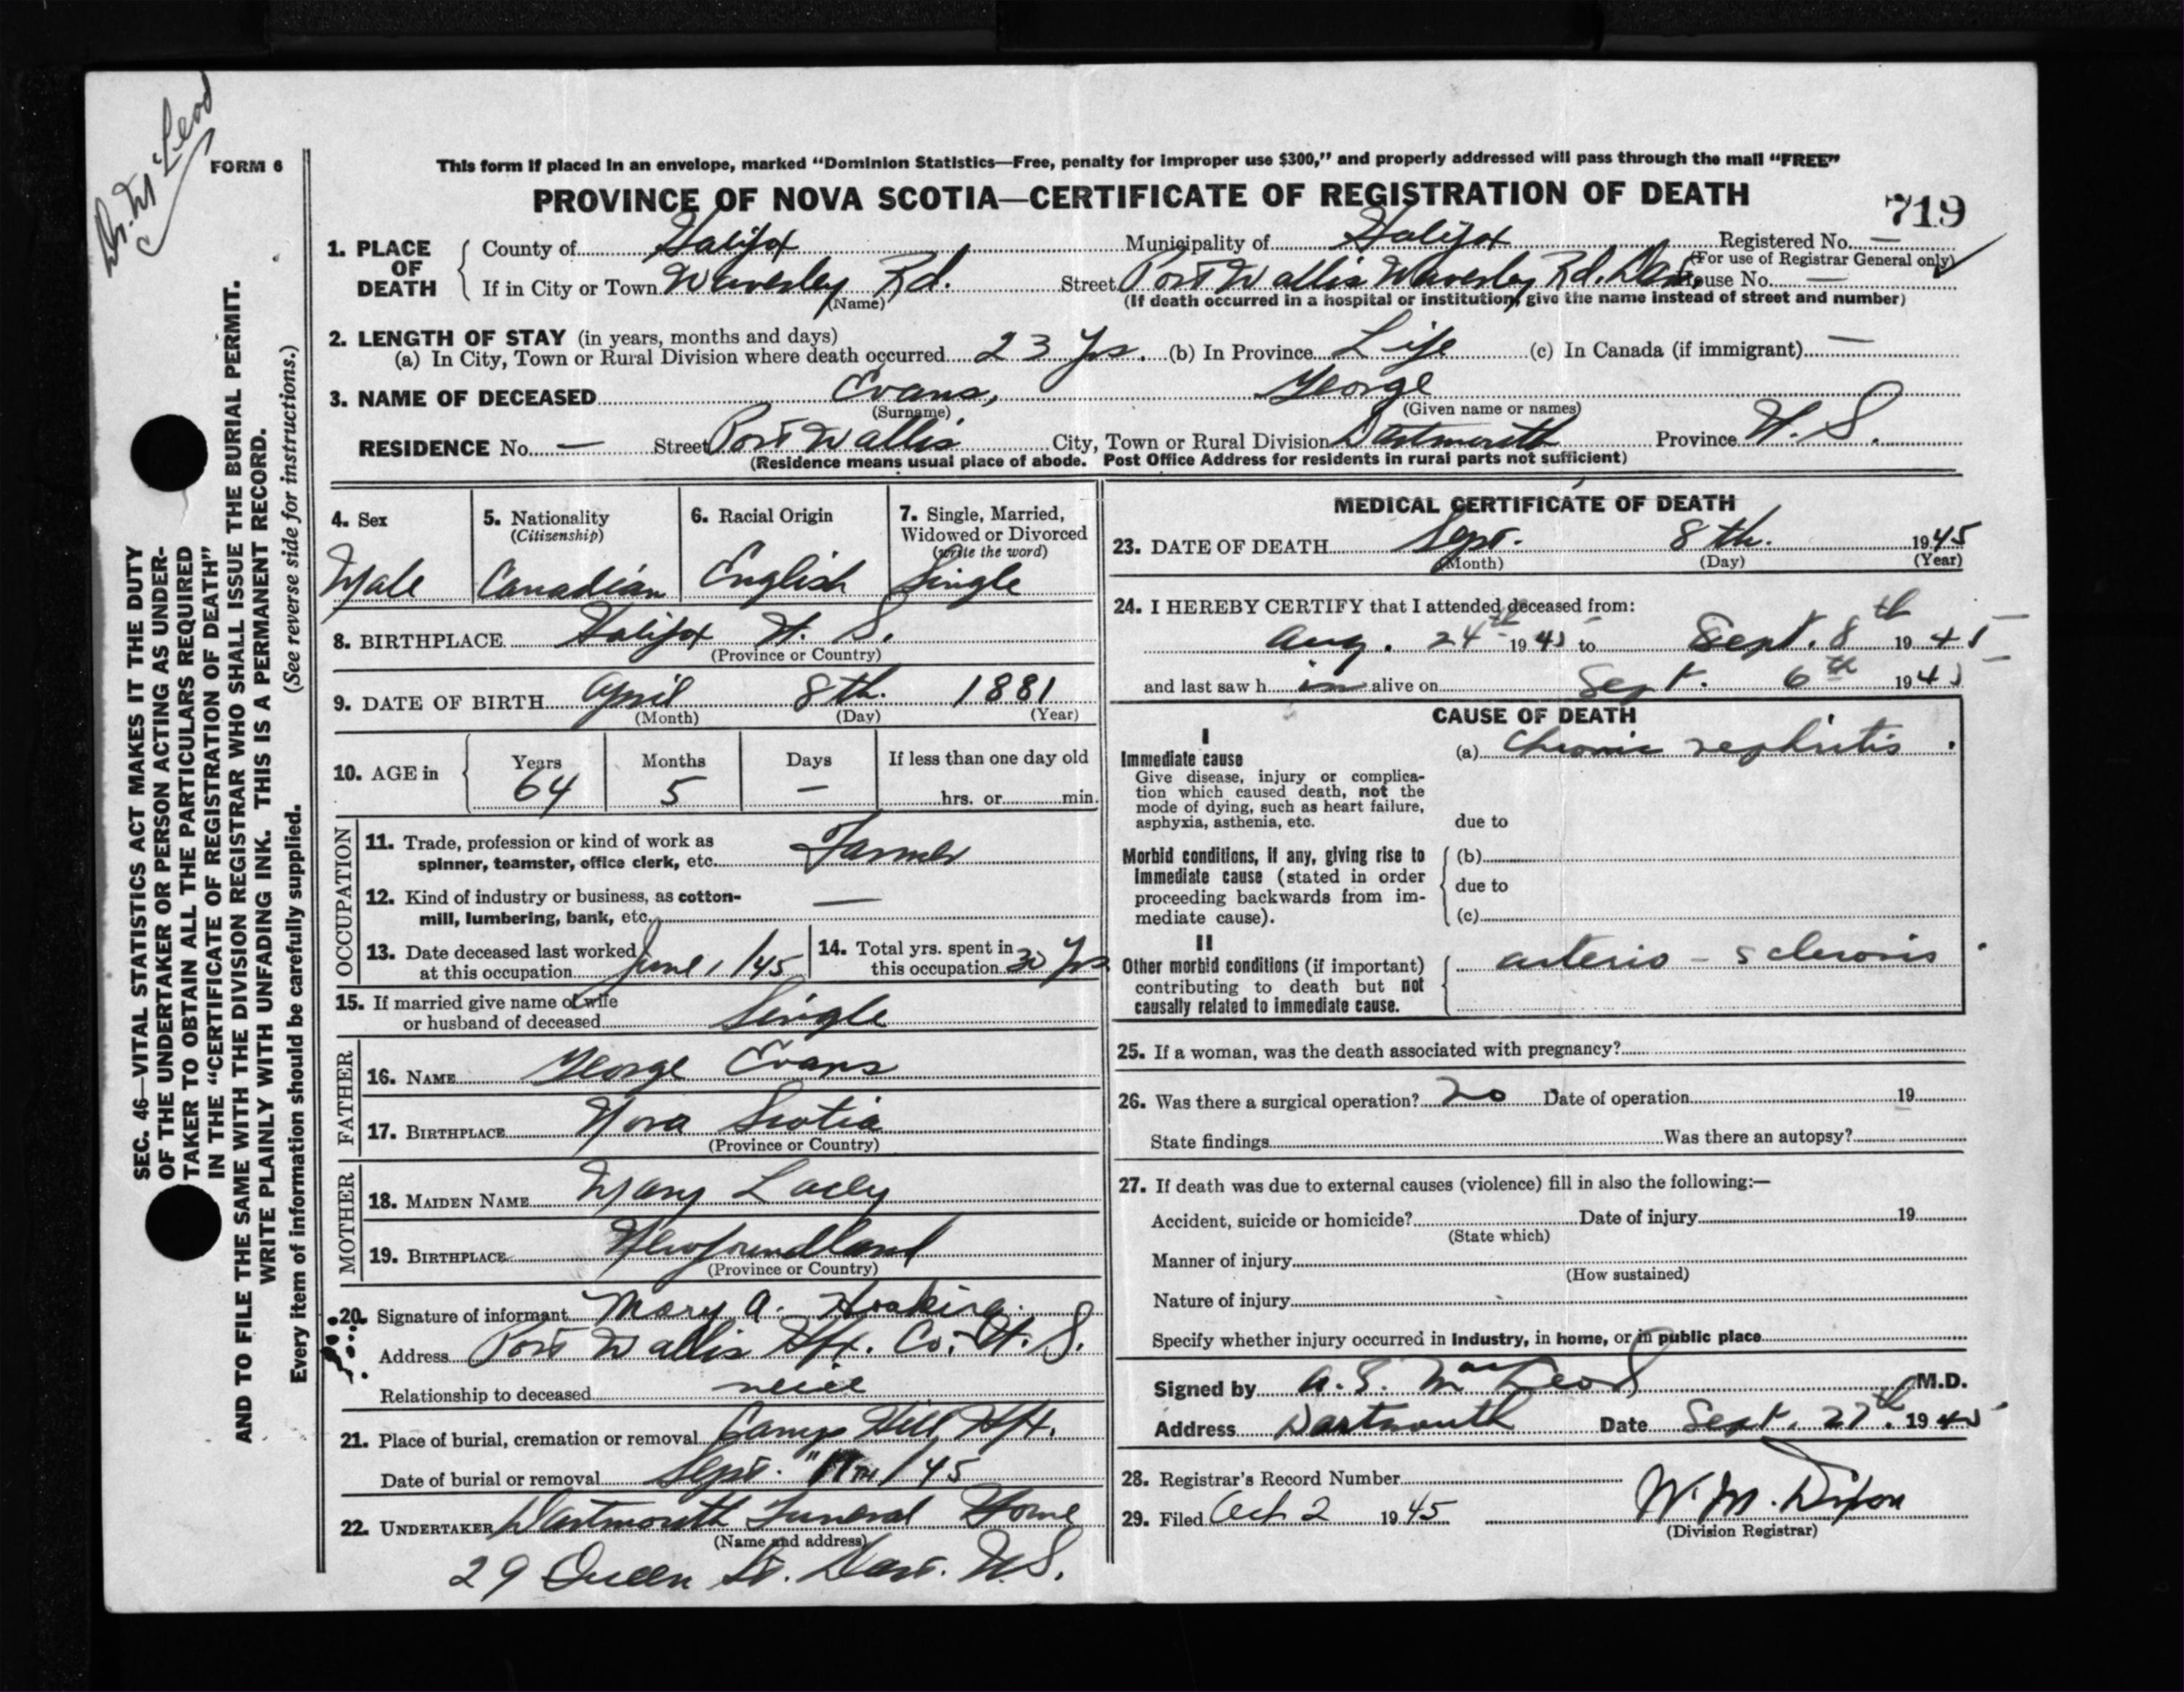 Dr. McLeod
FORM 6
This form if placed in an envelope, marked “Dominion Statistics—Free, penalty for improper use $300,” and properly addressed will pass through the mail “FREE”
PROVINCE OF NOVA SCOTIA—CERTIFICATE OF REGISTRATION OF DEATH
719
1. PLACE OF DEATH County of Halifax Municipality of Halifax Registered No. —
(For use of Registrar General only)
If in City or Town Waverley Rd. Street Port Wallis Waverley Rd. Dart. House No. —
(Name) (If death occurred in a hospital or institution, give the name instead of street and number)
2. LENGTH OF STAY (in years, months and days)
(a) In City, Town or Rural Division where death occurred 23 Yrs. (b) In Province Life (c) In Canada (if immigrant) —
3. NAME OF DECEASED Evans, George
(Surname) (Given name or names)
RESIDENCE No. — Street Port Wallis City, Town or Rural Division Dartmouth Province N. S.
(Residence means usual place of abode. Post Office Address for residents in rural parts not sufficient)
4. Sex 5. Nationality (Citizenship) 6. Racial Origin 7. Single, Married, Widowed or Divorced (write the word)
Male Canadian English Single
8. BIRTHPLACE Halifax N. S.
(Province or Country)
9. DATE OF BIRTH April 8th. 1881
(Month) (Day) (Year)
10. AGE in Years Months Days If less than one day old
64 5 — hrs. or min.
OCCUPATION
11. Trade, profession or kind of work as
spinner, teamster, office clerk, etc. Farmer
12. Kind of industry or business, as cotton-
mill, lumbering, bank, etc. —
13. Date deceased last worked
at this occupation June 1/45
14. Total yrs. spent in
this occupation 30 Yrs
15. If married give name of wife
or husband of deceased Single
FATHER
16. NAME George Evans
17. BIRTHPLACE Nova Scotia
(Province or Country)
MOTHER
18. MAIDEN NAME Mary Lacey
19. BIRTHPLACE Newfoundland
(Province or Country)
20. Signature of informant Mary A. Hosking
Address Port Wallis Hfx. Co. N. S.
Relationship to deceased neice
21. Place of burial, cremation or removal Camp Hill, Hfx.
Date of burial or removal Sept. 11TH/45
22. UNDERTAKER Dartmouth Funeral Home
(Name and address)
29 Queen St. Dart. N.S.
MEDICAL CERTIFICATE OF DEATH
23. DATE OF DEATH Sept. 8th. 1945
(Month) (Day) (Year)
24. I HEREBY CERTIFY that I attended deceased from:
Aug. 24th 1945 to Sept. 8th 1945
and last saw h im alive on Sept. 6th 1945
CAUSE OF DEATH
I
Immediate cause (a) Chronic nephritis.
Give disease, injury or complica-
tion which caused death, not the
mode of dying, such as heart failure,
asphyxia, asthenia, etc. due to
Morbid conditions, if any, giving rise to (b)
immediate cause (stated in order due to
proceeding backwards from im-
mediate cause). (c)
II
Other morbid conditions (if important) arterio-sclerosis.
contributing to death but not
causally related to immediate cause.
25. If a woman, was the death associated with pregnancy?
26. Was there a surgical operation? no Date of operation 19
State findings Was there an autopsy?
27. If death was due to external causes (violence) fill in also the following:—
Accident, suicide or homicide? Date of injury 19
(State which)
Manner of injury
(How sustained)
Nature of injury
Specify whether injury occurred in industry, in home, or in public place
Signed by A. S. MacLeod M.D.
Address Dartmouth Date Sept. 27th. 1945
28. Registrar's Record Number
29. Filed Oct 2 1945 W. M. Dixon
(Division Registrar)
SEC. 46—VITAL STATISTICS ACT MAKES IT THE DUTY
OF THE UNDERTAKER OR PERSON ACTING AS UNDER-
TAKER TO OBTAIN ALL THE PARTICULARS REQUIRED
IN THE “CERTIFICATE OF REGISTRATION OF DEATH”
AND TO FILE THE SAME WITH THE DIVISION REGISTRAR WHO SHALL ISSUE THE BURIAL PERMIT.
WRITE PLAINLY WITH UNFADING INK. THIS IS A PERMANENT RECORD.
Every item of information should be carefully supplied. (See reverse side for instructions.)